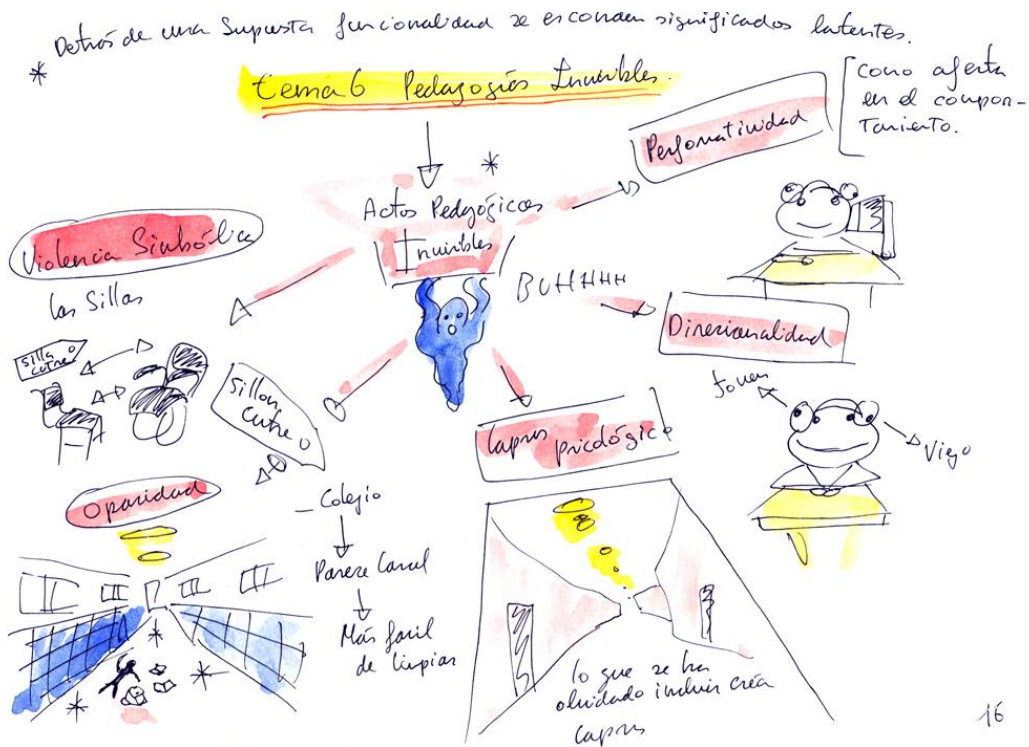 * Detrás de una supuesta funcionalidad se esconden significados latentes.
tema 6 Pedagogías Invisibles.
Perfomatividad
como afecta
en el compor-
tamiento.
*
Actos Pedagógicos
Invisibles
BUHHHH
Violencia Simbólica
las Sillas
silla
cutre
Sillon
cutre
Direcionalidad
Joven
Viejo
Lapsus psicológico
Opacidad
- Colegio
Parece Carcel
Más facil
de limpiar
lo que se ha
olvidado incluir crea
lapsus
16